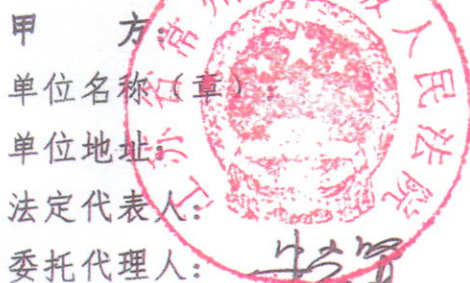 甲 方:
单位名称(章):
单位地址:
法定代表人:
委托代理人:
江苏省常州 人民法院